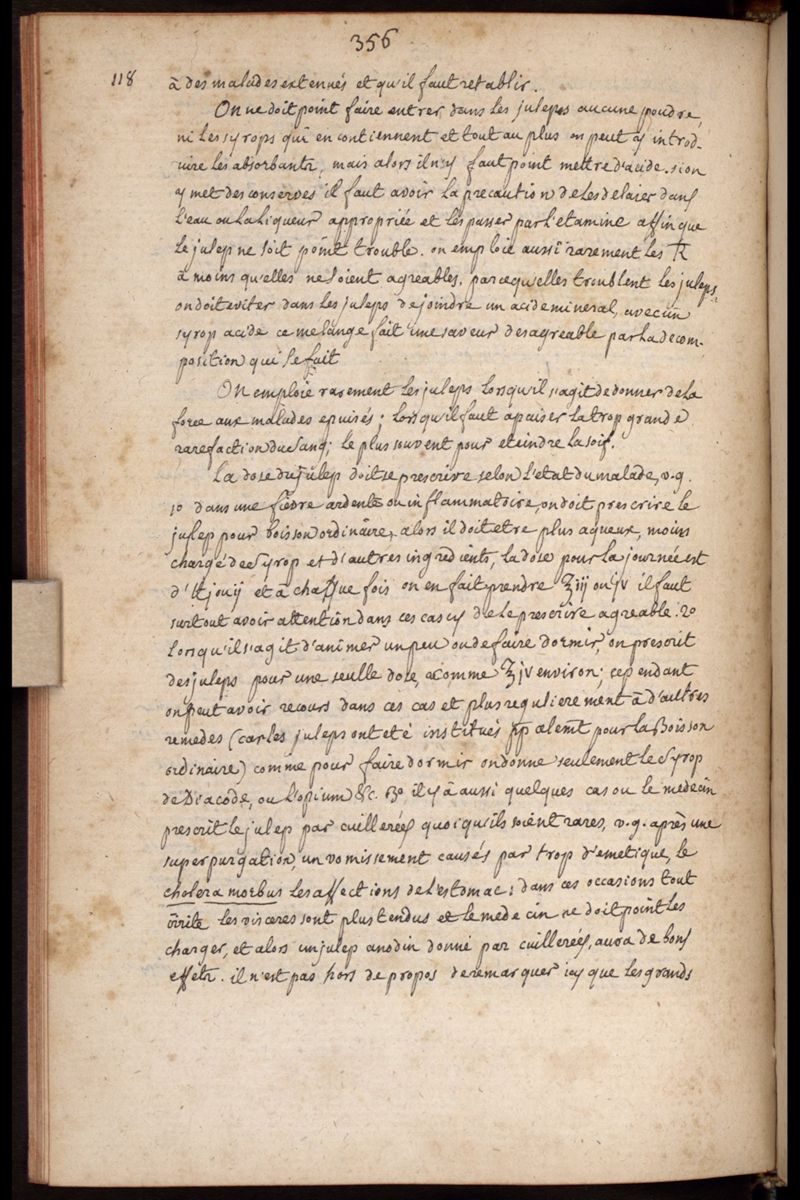 356
118 à des malades extenués et qu'il faut retablir.
On ne doit point faire entrer dans les juleps aucune poudre,
ni les syrops qui en contiennent et tout au plus on peut y introd-
uire les absorbants, mais alors il n'y faut point mettre d'acide. si on
y met des conserves il faut avoir la precaution de les delaier dans
l'eau ou la liqueur appropriée et les passer par l'etamine affin que
le julep ne soit point trouble. on emploie aussi rarement les
à moins qu'elles ne soient agreables, parcequ'elles troublent les juleps
on doit eviter dans les juleps de joindre un acide mineral, avec un
syrop acide ce melange fait une saveur desagreable par la decom-
position qui se fait
On emploie rarement les juleps lorsqu'il s'agit de donner de la
force aux malades epuisés; lorsqu'il faut apaiser la trop grande
rarefaction du sang; le plus souvent pour eteindre la soif.
La dose du julep doit se prescrire selon l'etat du malade, v.g.
1o dans une fievre ardente ou inflammatoire, on doit prescrire le
julep pour boisson ordinaire, alors il doit etre plus aqueux, moins
chargé de syrop et d'autres ingredients, la dose pour la journée est
d'℔j ou ij et à chaque fois on en fait prendre ℥iij ou jv il faut
surtout avoir attention dans ces cas cy de le prescrire agreable. 2o
lorsqu'il s'agit d'animer un peu ou de faire dormir, on prescrit
des juleps pour une seulle dose, comme ℥jv environ; cependant
on peut avoir recours dans ces cas et plus regulierement à d'autres
remedes (car les juleps ont eté institués pp̃alemt pour la Boisson
ordinaire) comme pour faire dormir on donne seulement le syrop
de Diacode, ou l'opium &c. 3o il y a aussi quelques cas ou le medecin
prescrit le julep par cuillerées quoi qu'ils soient rares, v.g. après une
superpurgation, un vomissement causés par trop d'emetique, le
cholera morbus les affections de l'estomac; dans ces occasions tout
irrite les visceres sont plus tendus et le medecin ne doit point les
charger, et alors un julep anodin donné par cuillerées, aura de bons
effets. il n'est pas hors de propos de remarquer icy que les grands